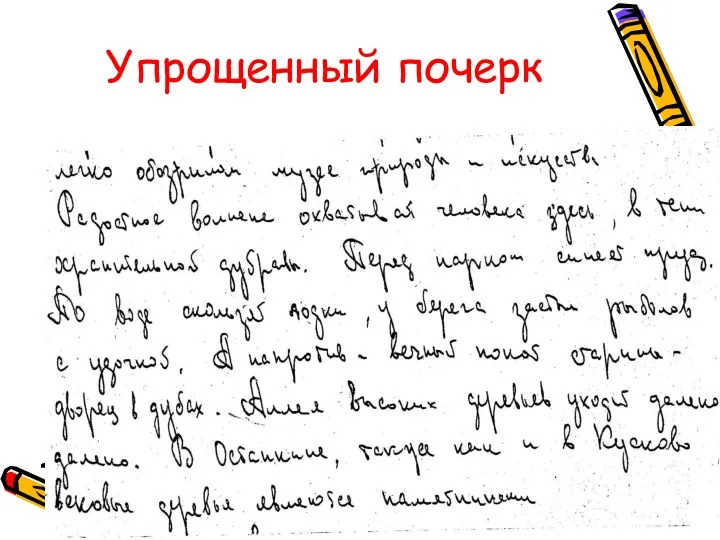 Упрощенный почерк
легко обозримом музее природы и искуств.
Радостное волнене охватывает человека здесь, в тени
хранительной дубравы. Перед парком синеет пруд.
По воде скользят лодки, у берега застыл рыболов
с удочкой. А напротив - вечный покой старины -
дворец в дубах. Аллея высоких деревьев уходит далеко
далеко. В Останкине, также как и в Кусково
вековые деревья являются памятниками